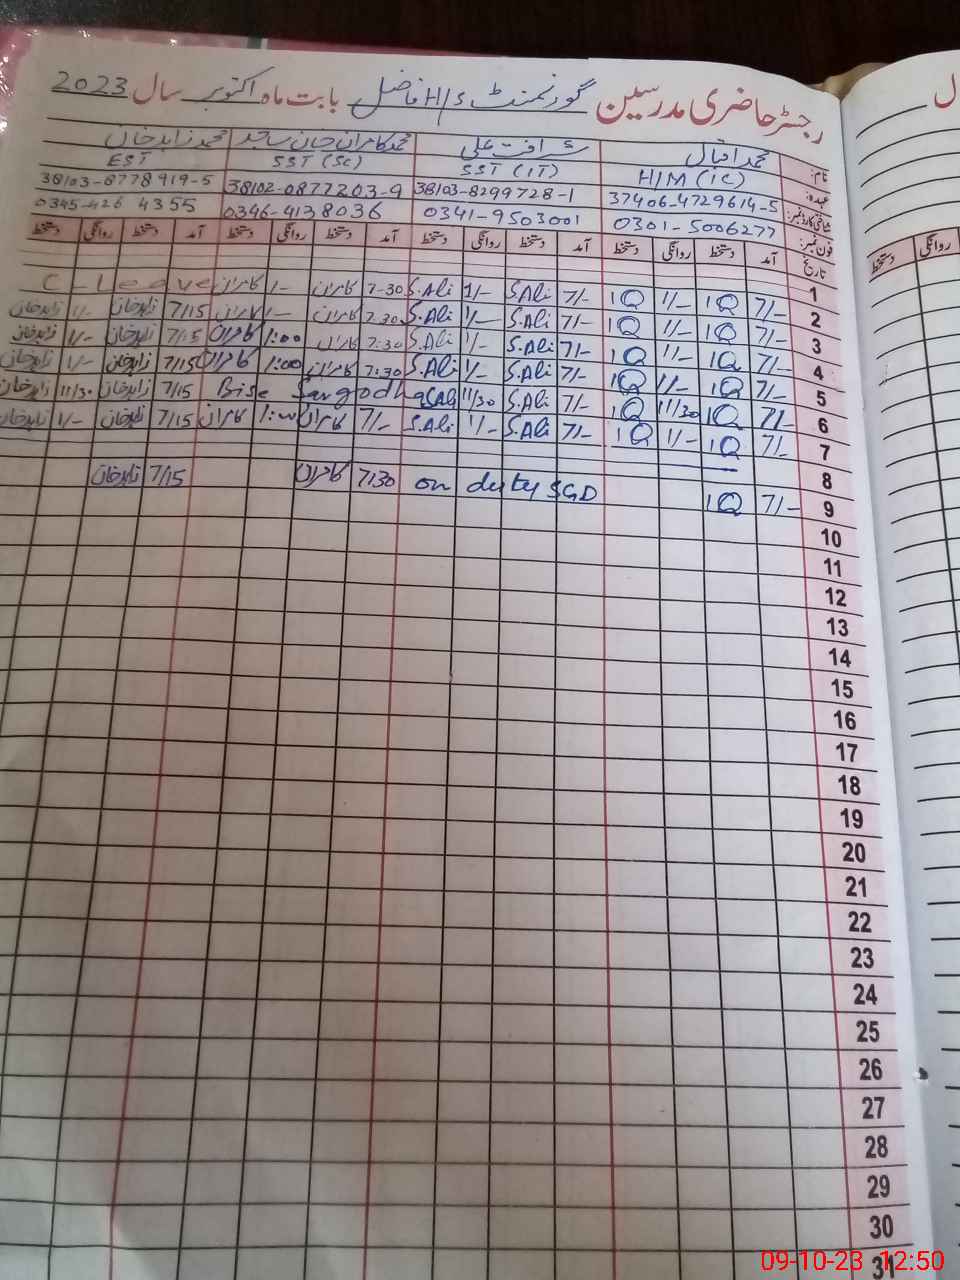 رجسٹر حاضری مدرسین گورنمنٹ H/S فاضل بابت ماہ اکتوبر سال 2023
نام: محمد اقبال شرافت علی محمد کامران خان ساجد محمد زاہد خان
عہدہ: H/M (ic) SST (IT) SST (Sc) EST
شناختی کارڈ نمبر: 37406-4729614-5 38103-8299728-1 38102-0877203-9 38103-8778919-5
فون نمبر: 0301-5006277 0341-9503001 0346-9138036 0345-426 4355
تاریخ آمد دستخط روانگی دستخط آمد دستخط روانگی دستخط آمد دستخط روانگی دستخط آمد دستخط روانگی دستخط
1 7/- IQ 1/- IQ 7/- S.Ali 1/- S.Ali 7-30 کامران 1/- کامران C-Leave
2 7/- IQ 1/- IQ 7/- S.Ali 1/- S.Ali 7.30 کامران 1/- کامران 7/15 زاہد خان 1/- زاہد خان
3 7/- IQ 1/- IQ 7/- S.Ali 1/- S.Ali 7:30 کامران 1:00 کامران 7/15 زاہد خان 1/- زاہد خان
4 7/- IQ 1/- IQ 7/- S.Ali 1/- S.Ali 7:30 کامران 1:00 کامران 7/15 زاہد خان 1/- زاہد خان
5 7/- IQ 11/30 IQ 7/- S.Ali 11/30 S.Ali Bise Sargodha 7/15 زاہد خان 11/30 زاہد خان
6 7/- IQ 1/- IQ 7/- S.Ali 1/- S.Ali 7/- کامران 1:00 کامران 7/15 زاہد خان 1/- زاہد خان
7
8
9 7/- IQ on duty SGD 7:30 کامران 7/15 زاہد خان
10
11
12
13
14
15
16
17
18
19
20
21
22
23
24
25
26
27
28
29
30
31
روانگی دستخط
09-10-23 12:50